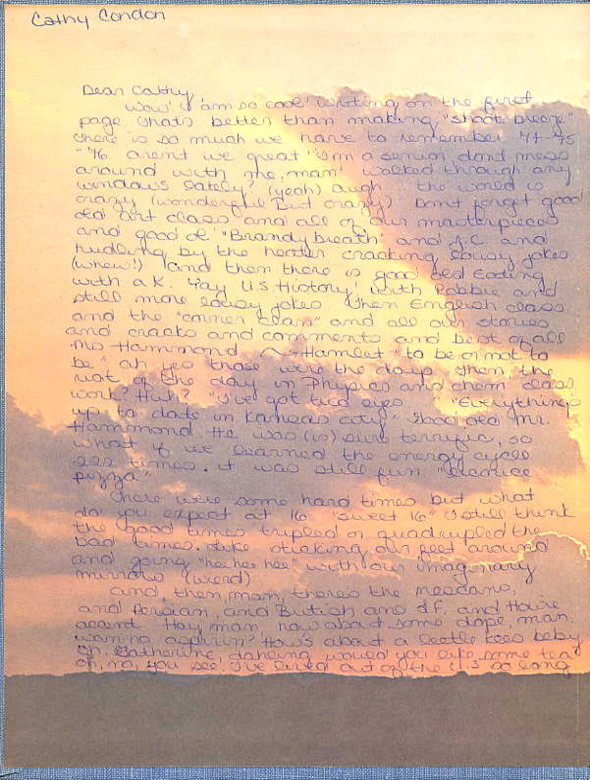 Cathy Condon
Dear Cathy,
Wow! I 'am so cool' writing on the first
page thats better than making "shoot breeze"
there is so much we have to remember 74-75
-'76 arent we great I'm a senior dont mess
around with me, man. Walked through any
windows lately? (yeah) augh the world is
crazy (wonderful But crazy) Dont forget good
old art class and all of our masterpieces
and good ol' "Brandy breath" and J.C. and
hudling by the heater cracking lousy jokes
(whew!) and then there is good old Eating
with a K. "Yay US History" with Robbie and
still more lousy jokes then English class
and the "corner clan" and all our stories
and cracks and comments and best of all
Ms Hammond Hamlet "to be or not to
be" ah yes those were the days. then the
rest of the day in Physics and chem class
work? Huh? "I've got two eyes "Everythings
up to date in Kansas city" Good old Mr.
Hammond. He was (is) sure terrific, so
what if we learned the energy cycle
222 times. it was still fun
pizza"
there were some hard times but what
do you expect at 16. "sweet 16" I still think
the good times tripled or quadrupled the
bad times. Like sticking our feet around
and going "hee hee hee" with our imaginary
mirrors (wierd)
and, then, man, theres the
and Persian, and British and J.F. and Howie
accent Hay, man, how about some dope, man.
wanna aspirin? How's about a leetle kees baby
Oh, Catherine, dahling would you like some tea
oh, no, you see I've lived out of the U.S so long